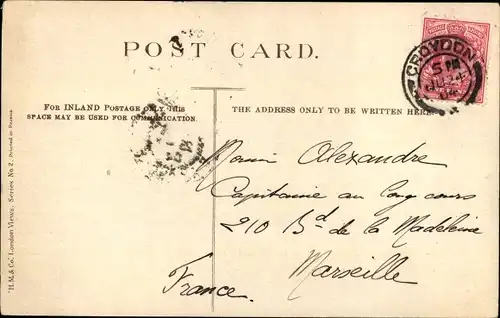 POST CARD.
FOR INLAND POSTAGE ONLY THIS
SPACE MAY BE USED FOR COMMUNICATION.
THE ADDRESS ONLY TO BE WRITTEN HERE.
CROYDON
5 PM
Alexandre
Capitaine au long cours
210 Bd de la Madeleine
Marseille
France.
"H.M. & Co. London Views. Series No 2.